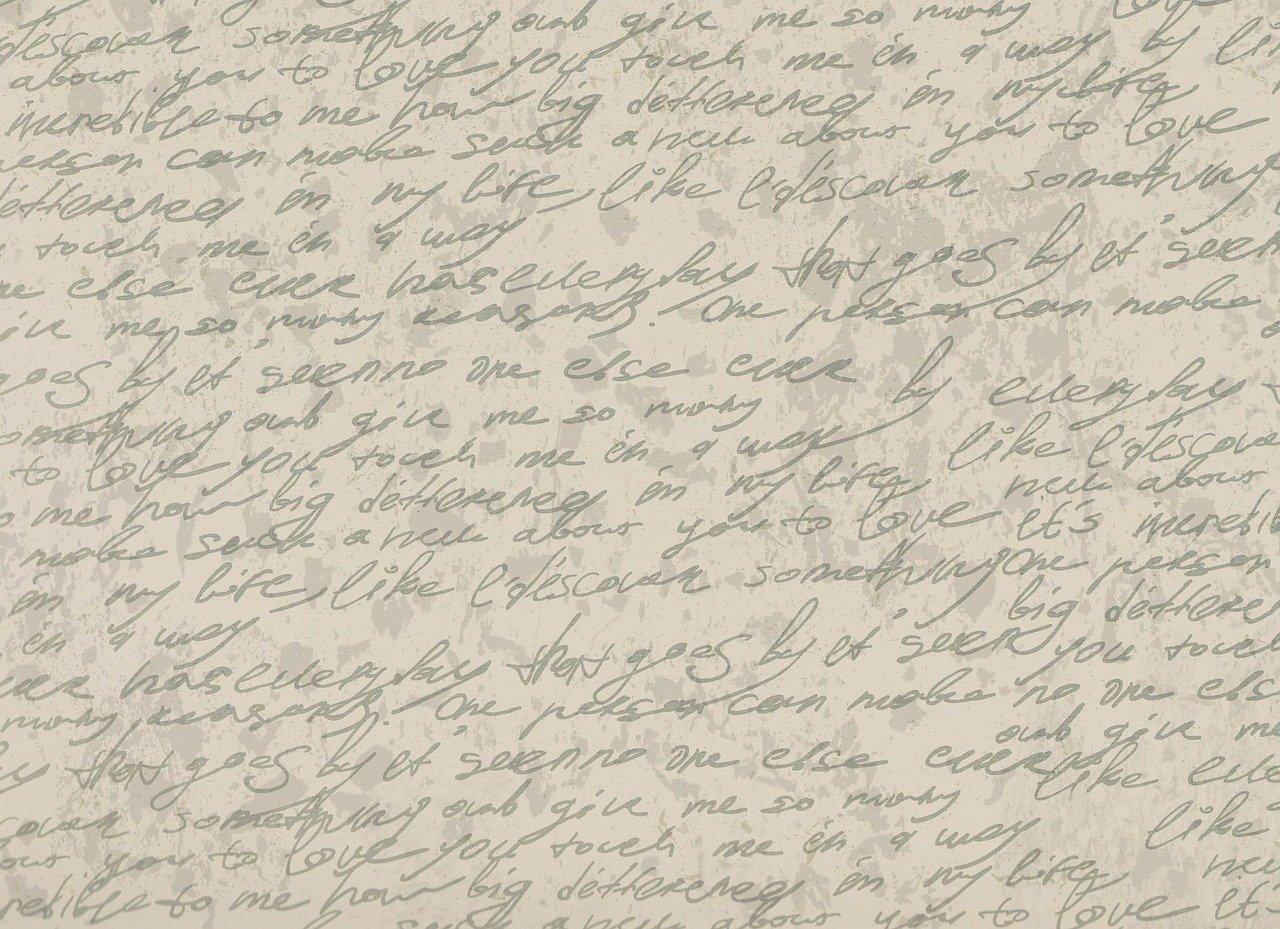 discover something and give me so many love
about you to love you touch me in a way by li
incredible to me how big difference in my life
person can make such a new about you to love
difference in my life, like I discover something
touch me in a way
else ever has everyday that goes by it seem
give me so many reasons. One person can make
goes by it seem no one else ever by everyday
something and give me so many
to love you touch me in a way like I discove
me how big difference in my life new about
make such a new about you to love it's incredi
in my life, like I discover something One person
big differe
in a way you touch
ever has everyday that goes by it seem
many reasons. One person can make no one els
and give me
that goes by it seem no one else ever like eve
cover something and give me so many
you to love you touch me in a way like
to me how big difference in my life new
such a new about you to love it's